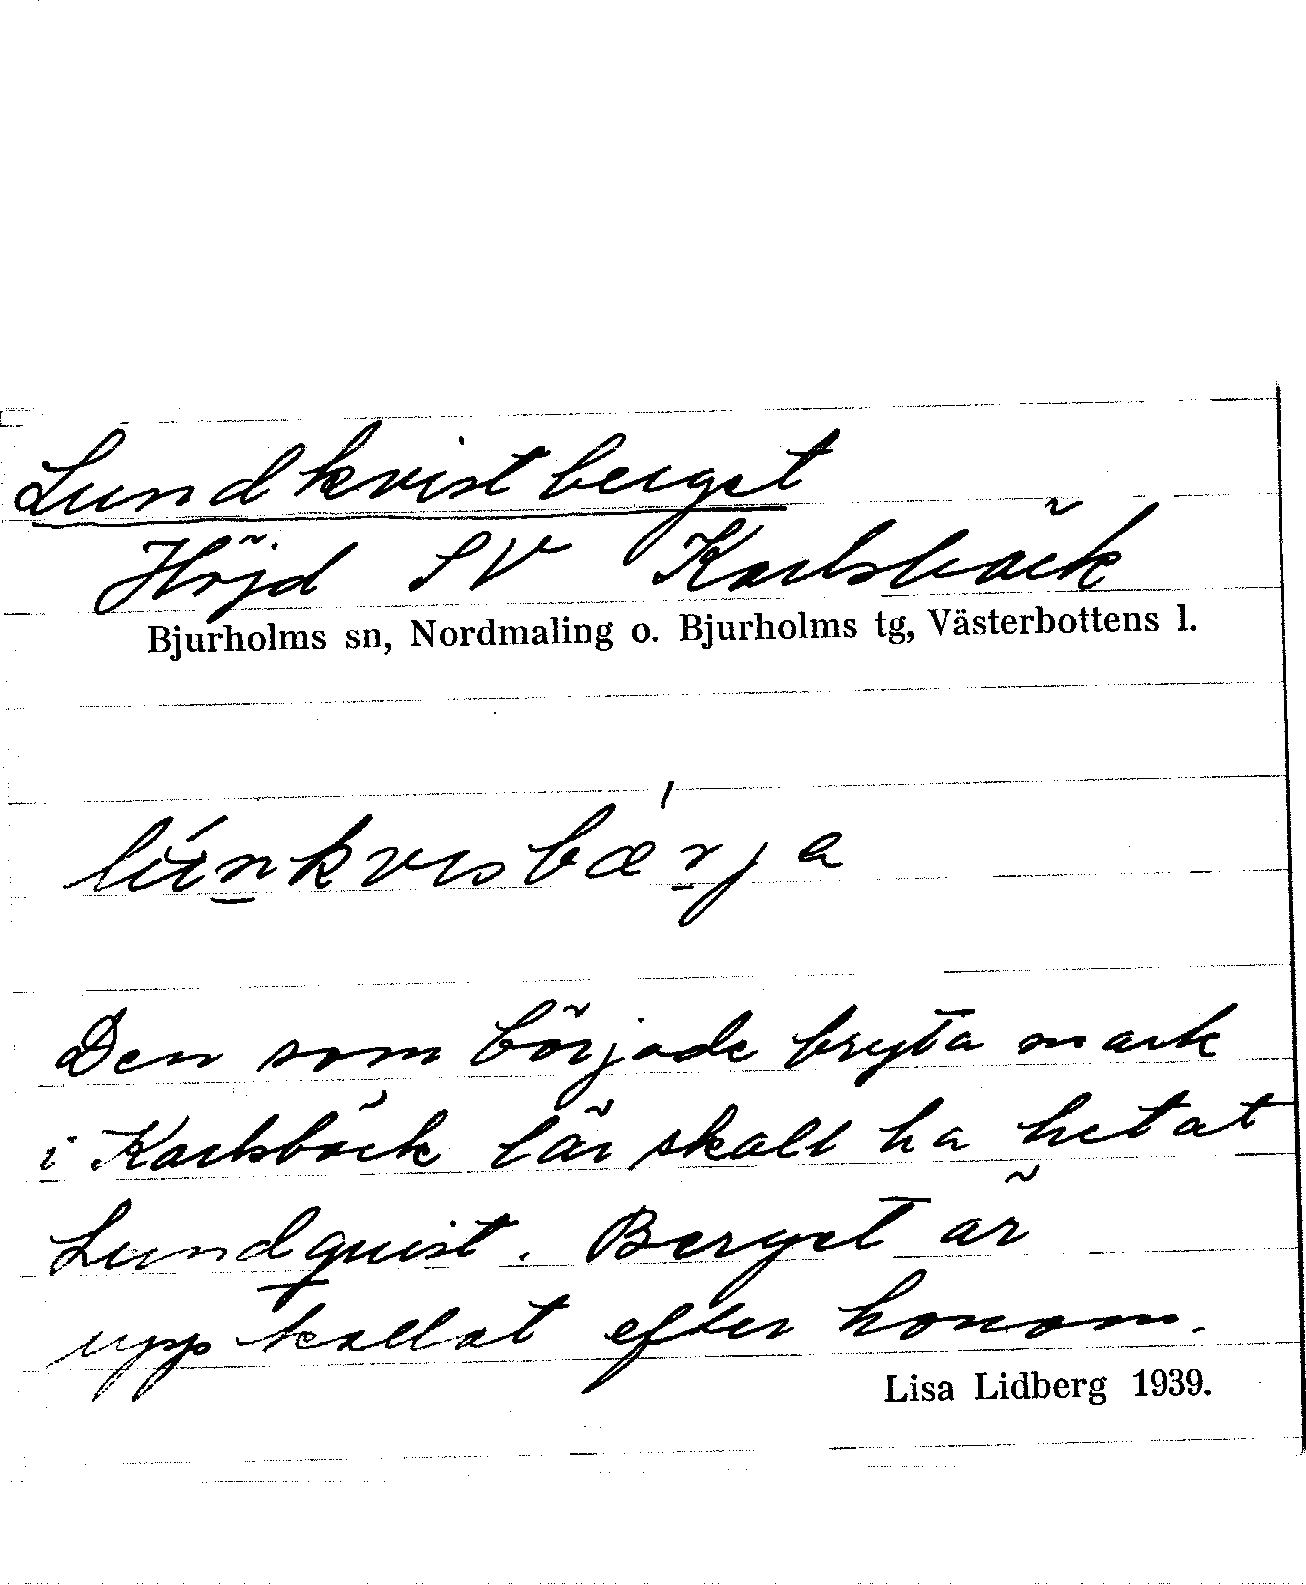 Lundkvistberget
Höjd SV Karlsbäck
Bjurholms sn, Nordmaling o. Bjurholms tg, Västerbottens l.
lúnkvisbæŕja
Den som började bryta mark
i Karlsbäck lär skall ha hetat
Lundquist. Berget är
uppkallat efter honom.
Lisa Lidberg 1939.